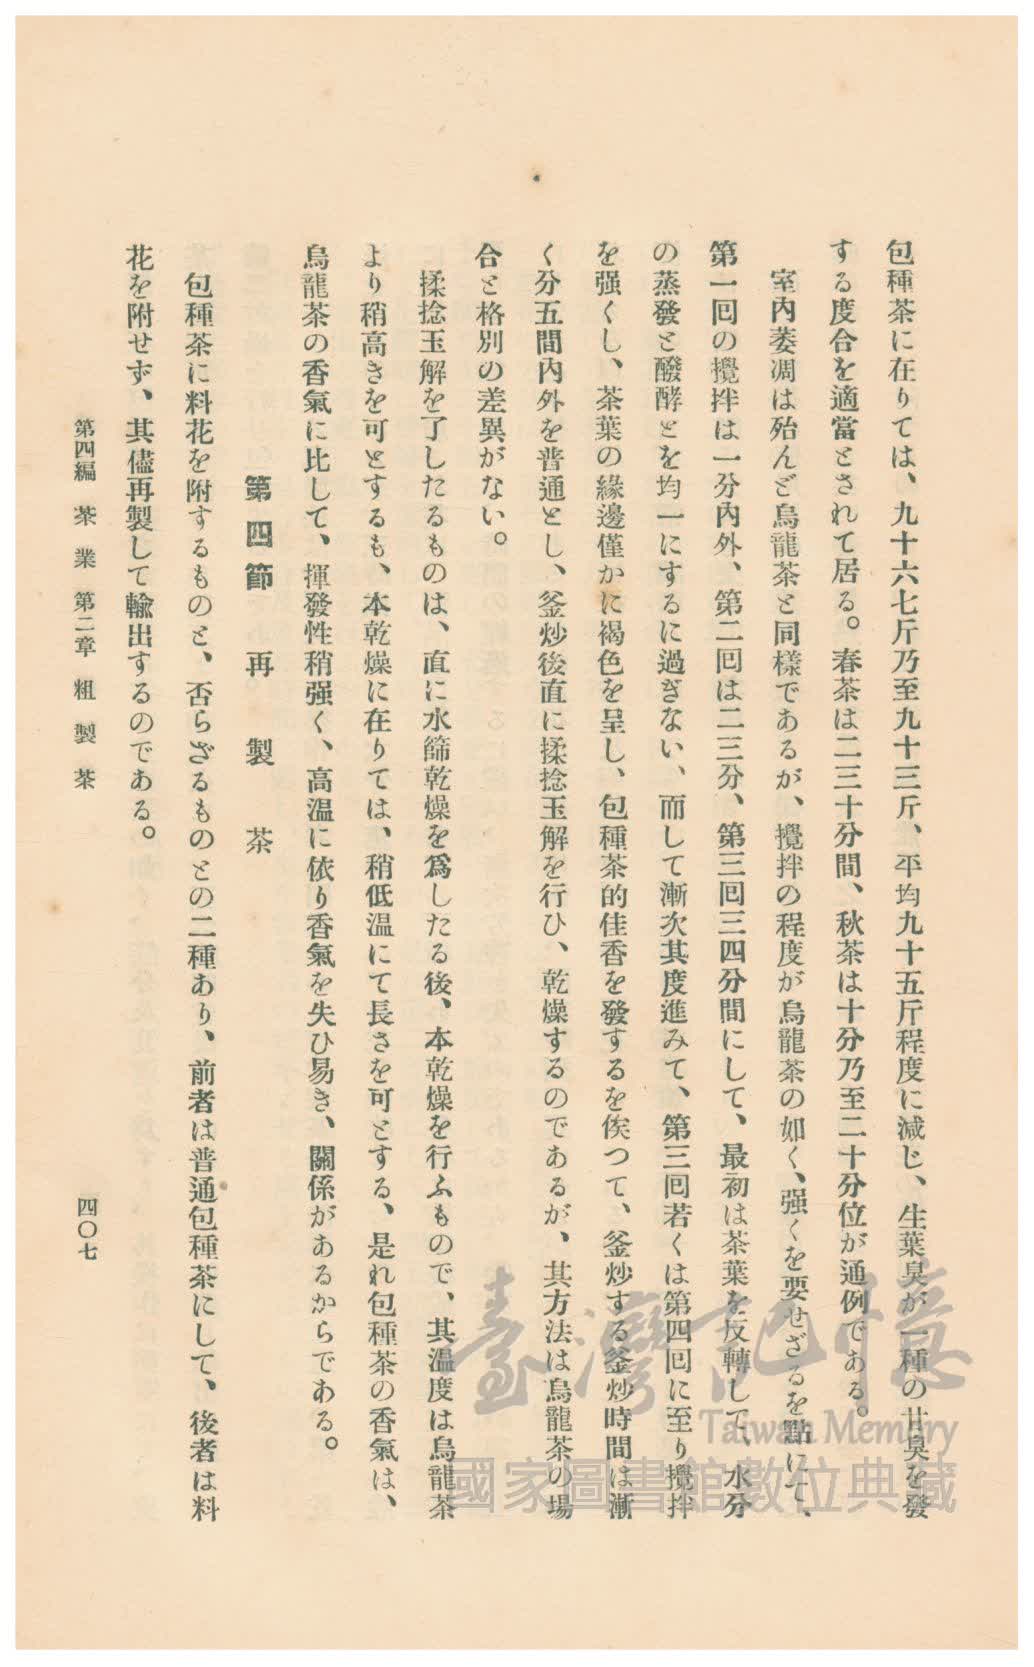 包種茶に在りては、九十六七斤乃至九十三斤、平均九十五斤程度に減じ、生葉臭が一種の甘臭を發
する度合を適當とされて居る。春茶は二三十分間、秋茶は十分乃至二十分位が通例である。
室內萎凋は殆んど烏龍茶と同樣であるが、攪拌の程度が烏龍茶の如く、强くを要せざるを點にて、
第一回の攪拌は一分內外、第二回は二三分、第三回三四分間にして、最初は茶葉を反轉して、水分
の蒸發と醱酵とを均一にするに過ぎない、而して漸次其度進みて、第三回若くは第四回に至り攪拌
を强くし、茶葉の緣邊僅かに褐色を呈し、包種茶的佳香を發するを俟つて、釜炒する釜炒時間は漸
く分五間內外を普通とし、釜炒後直に揉捻玉解を行ひ、乾燥するのであるが、其方法は烏龍茶の場
合と格別の差異がない。
揉捻玉解を了したるものは、直に水篩乾燥を爲したる後、本乾燥を行ふもので、其溫度は烏龍茶
より稍高きを可とするも、本乾燥に在りては、稍低溫にて長さを可とする、是れ包種茶の香氣は、
烏龍茶の香氣に比して、揮發性稍强く、高溫に依り香氣を失ひ易き、關係があるからである。
第四節 再製茶
包種茶に料花を附するものと、否らざるものとの二種あり、前者は普通包種茶にして、後者は料
花を附せず、其儘再製して輸出するのである。
第四編 茶業 第二章 粗製茶
四〇七
臺灣記憶
Taiwan Memory
國家圖書館數位典藏